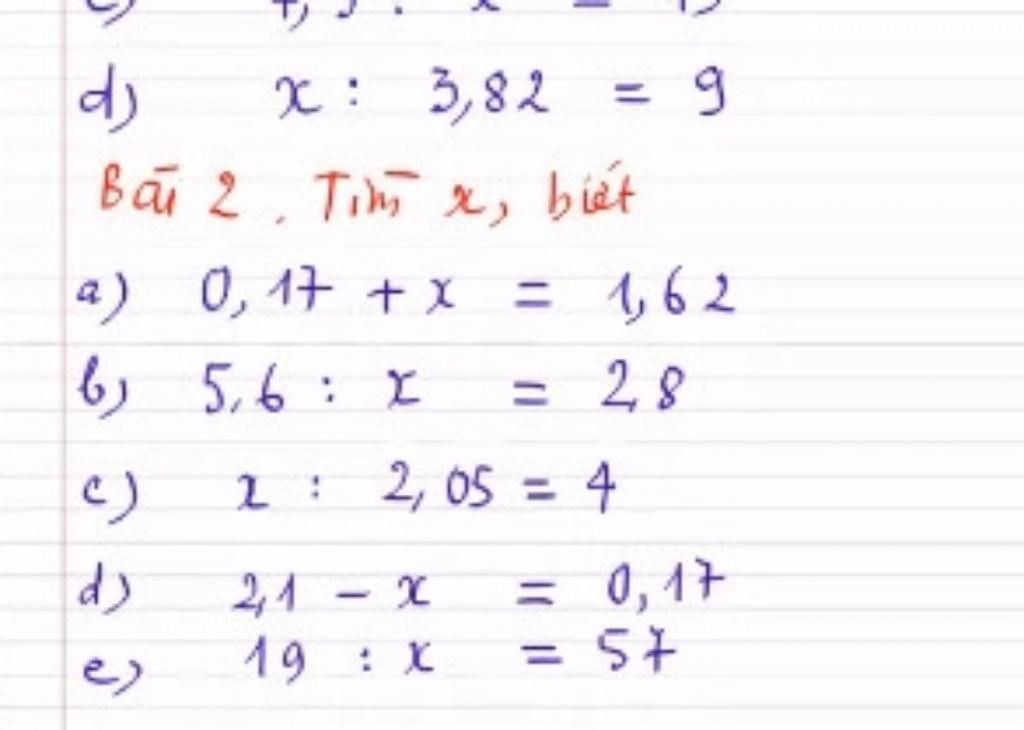 d) x : 3,82 = 9
Bài 2. Tìm x, biết
a) 0,17 + x = 1,62
b) 5,6 : x = 2,8
c) x : 2,05 = 4
d) 2,1 - x = 0,17
e) 19 : x = 57